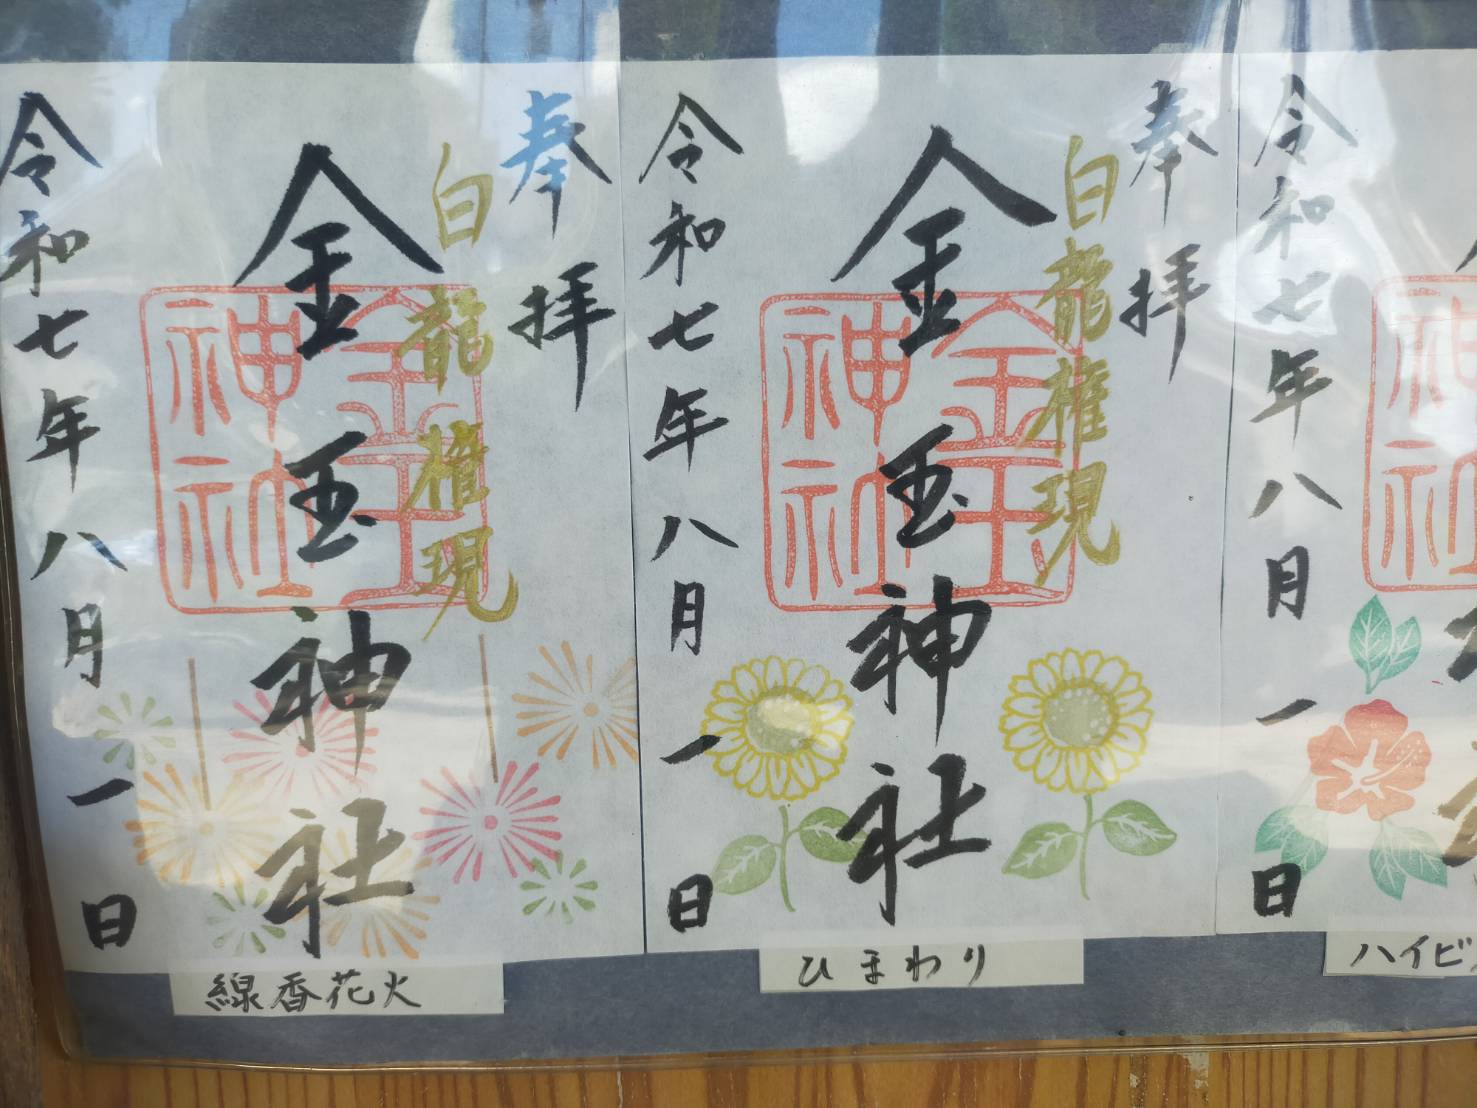 奉拝
白龍権現
金玉神社
金玉神社
令和七年八月一日
線香花火
奉拝
白龍権現
金玉神社
金玉神社
令和七年八月一日
ひまわり
令和七年八月一日
ハイビ